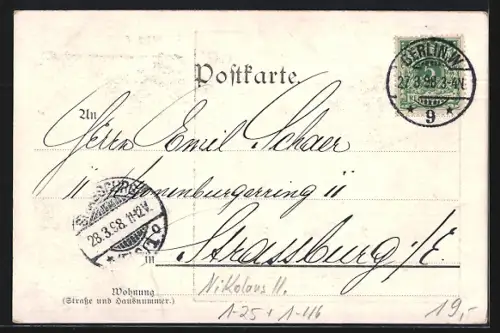 BERLIN.W.
27.3.98.3-4N.
* 9 *
Postkarte.
An
Herrn Emil Schaer
11 Kronenburgerring 11
28.3.98. 11-12V.
in Strassburg i/E.
Wohnung
(Straße und Hausnummer.)
Nikolaus II.
1-25 + 1-116
19,-